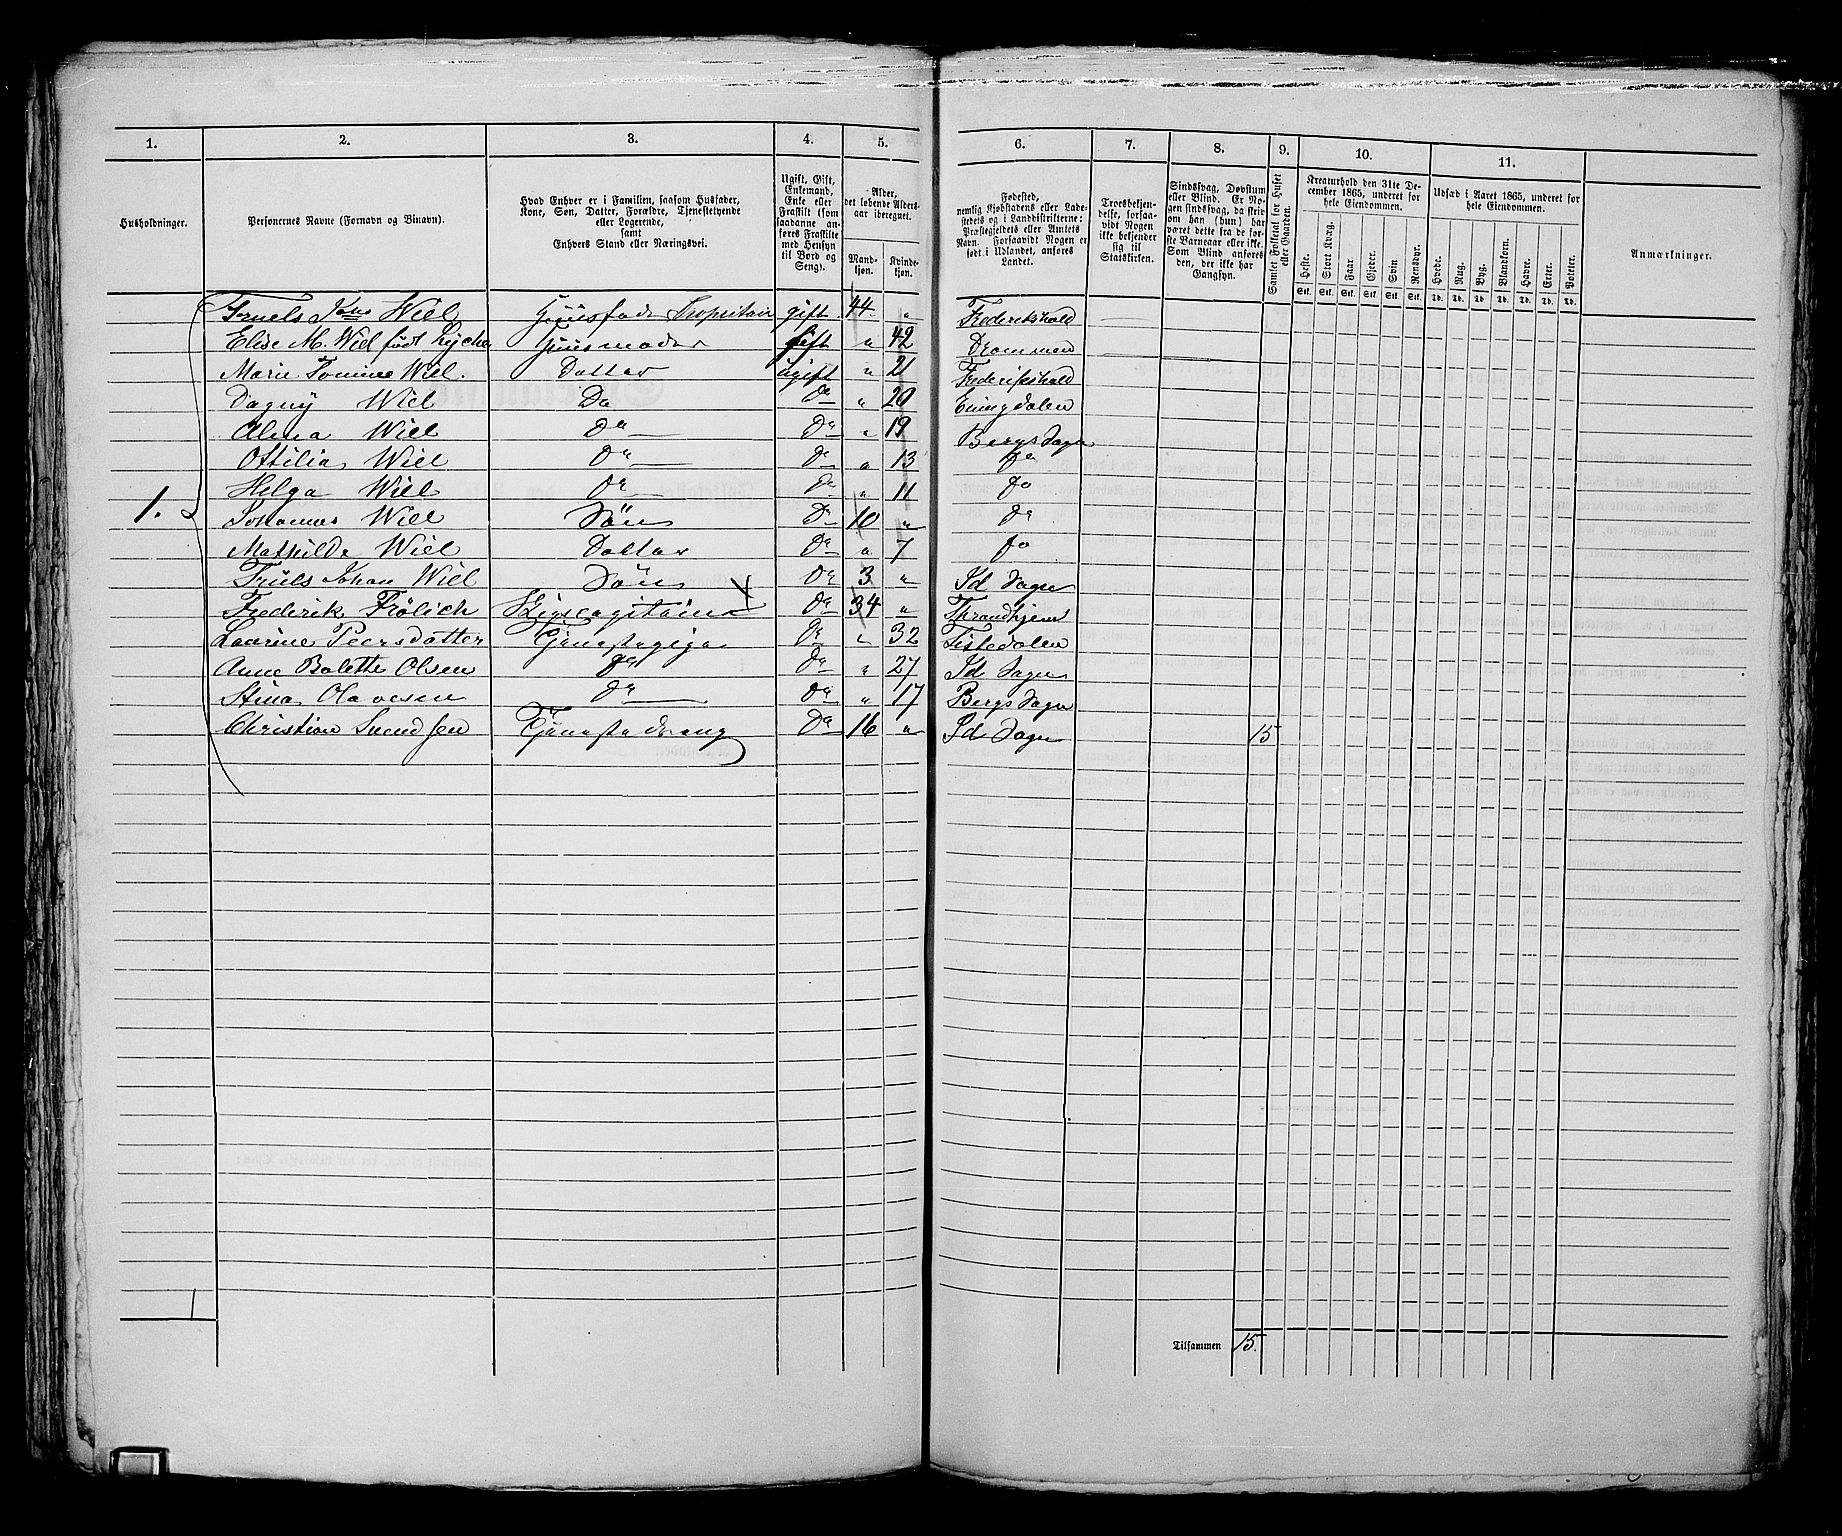 1. 2. 3. 4. 5. 6. 7. 8. 9. 10. 11.
Husholdninger.
Personernes Navne (Fornavn og Binavn).
Hvad Enhver er i Familien, saasom Husfader,
Kone, Søn, Datter, Forældre, Tjenestetyende
eller Logerende,
samt
Enhvers Stand eller Næringsvei.
Ugift, Gift,
Enkemand,
Enke eller
Fraskilt (som
saadanne an-
føres Fraskilte
med Hensyn
til Bord og
Seng).
Alder,
det løbende Alders-
aar iberegnet.
Mand-
kjøn.
Kvinde-
kjøn.
Fødested,
nemlig Kjøbstadens eller Lade-
stedets og i Landdistrikterne:
Præstegjeldets eller Amtets
Navn. Forsaavidt Nogen er
født i Udlandet, anføres
Landet.
Troesbekjen-
delse, forsaa-
vidt Nogen
ikke bekjender
sig til
Statskirken.
Sindssvag, Døvstum
eller Blind. Er No-
gen sindssvag, da skri-
ves om han (hun) har
været dette fra de før-
ste Barneaar eller ikke.
Som Blind anføres
den, der ikke har
Gangsyn.
Samlet Folketal for Huset
eller Gaarden.
Kreaturhold den 31te De-
cember 1865, underet for
hele Eiendommen.
Heste. Stort Kvæg. Faar. Gjeder. Svin. Rensdyr.
Stk. Stk. Stk. Stk. Stk. Stk.
Udsæd i Aaret 1865, underet for
hele Eiendommen.
Hvede. Rug. Byg. Blandkorn. Havre. Erter. Poteter.
Td. Td. Td. Td. Td. Td. Td.
Anmærkninger.
Wiel gift 44 " Frederikshald
Elise M. Wiel født Huusmoder gift " 42 Drammen
Marie Wiel. Datter ugift " 21 Frederikshald
Dagny Wiel Do Do " 20 Eningdalen
Alma Wiel Do Do " 19 Bergs Sogn
Ottilia Wiel Do Do " 13 Do
Helga Wiel Do Do " 11 Do
1. Johannes Wiel Søn Do 10 " Do
Mathilde Wiel Datter Do " 7 Do
Truls Johan Wiel Søn Do 3 " Id Sogn
Frederik Frölich Do 34 " Throndhjem
Laurine Peersdatter Tjenestepige Do " 32 Tistedalen
Anne Bolette Olsen Do Do " 27 Id Sogn
Stina Olavesen Do Do " 17 Bergs Sogn
Christian Svendsen Tjenestedreng Do 16 " Id Sogn 15
1
Tilsammen 15.